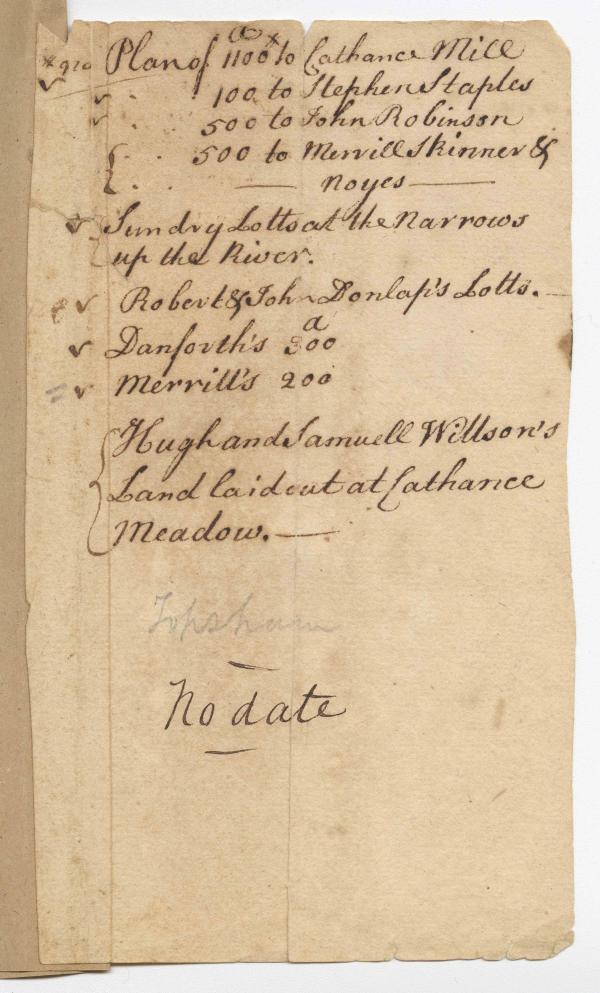 * 920 Plan of 1100 a * to Cathance Mill
100 to Stephen Staples
500 to John Robinson
500 to Merrill Skinner &
Noyes
Sundry Lotts at the Narrows
up the River.
Robert & John Donlap's Lotts.
Danforth's 300 a
Merritt's 200
Hugh and Samuell Willson's
Land laid out at Cathance
Meadow.
Topsham
No date